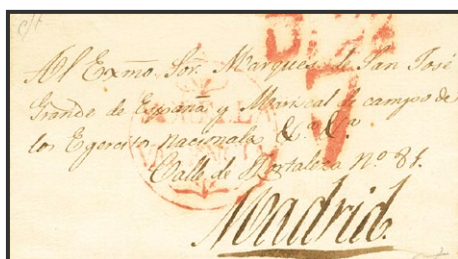 Al Exmo. Sor. Marques de San José
Grande de España y Mariscal de campo de
los Egercitos nacionales &a. &a.
Calle de Hortaleza No 81.
Madrid.